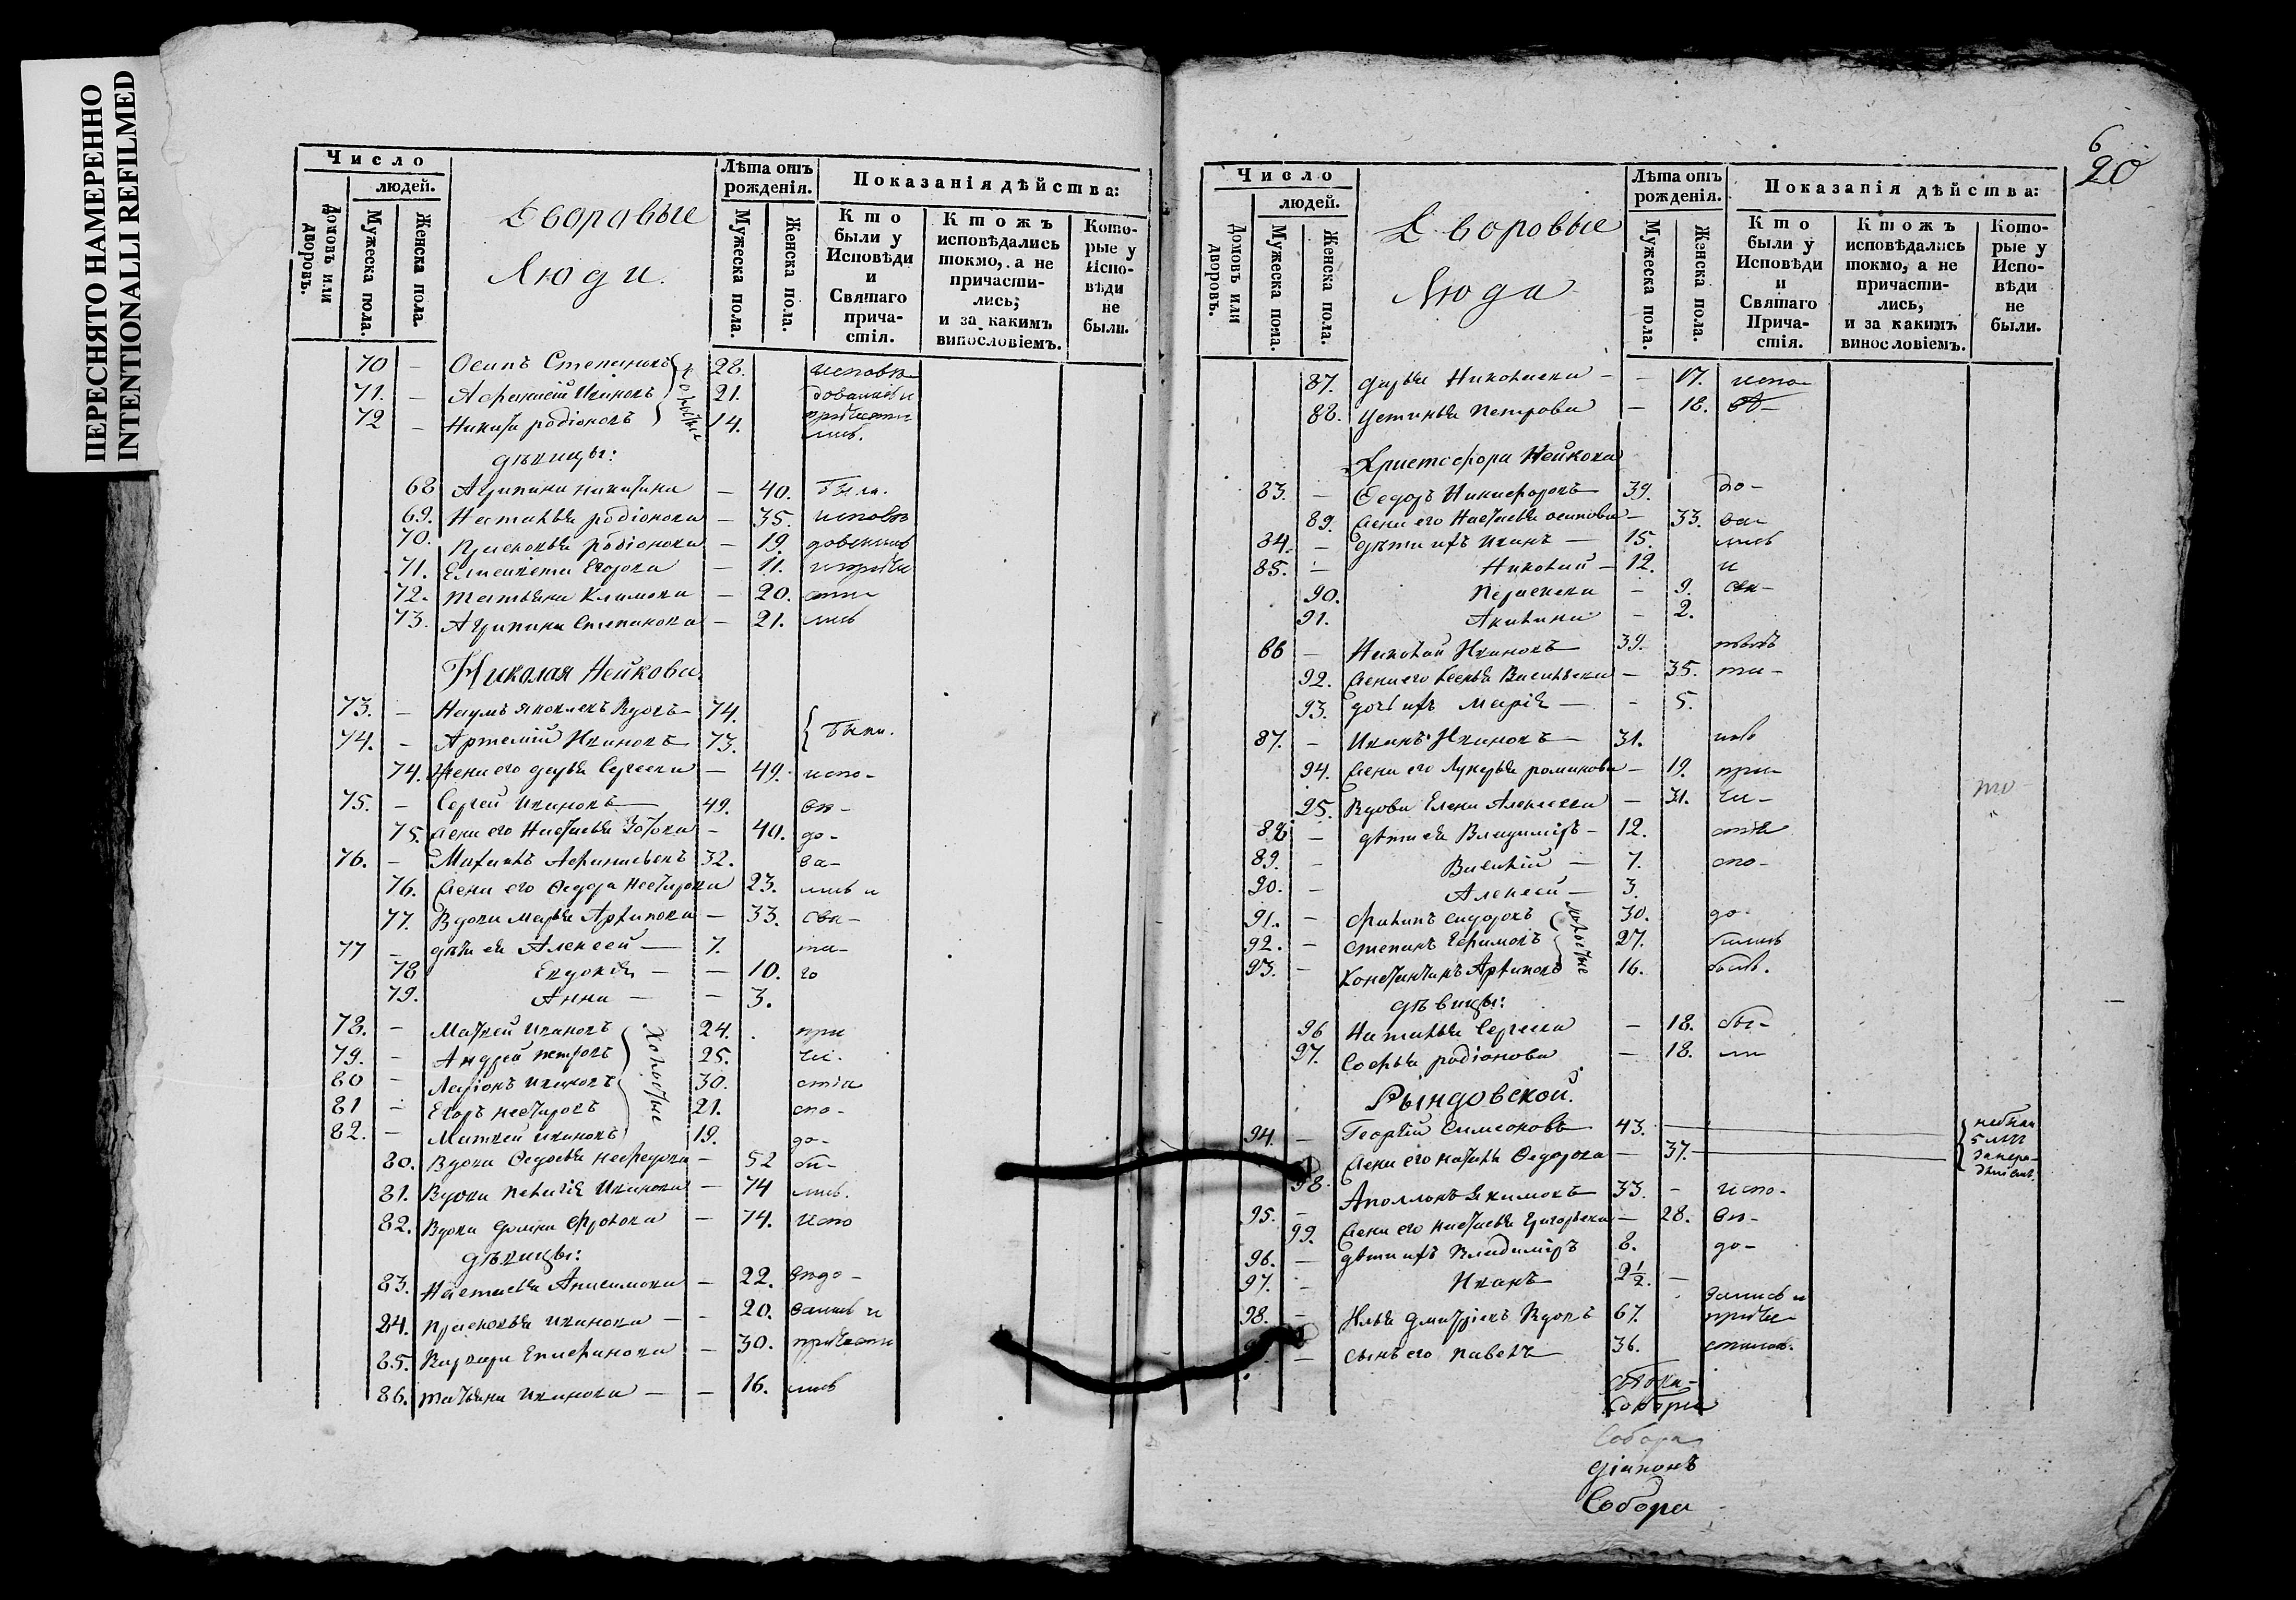 ПЕРЕСНЯТО НАМЕРЕННО
INTENTIONALLI REFILMED
Число
людей.
Домовъ или дворовъ.
Мужеска пола.
Женска пола.
Дворовые
Люди.
Лѣта отъ рожденія.
Мужеска пола.
Женска пола.
Показанія дѣйства:
Кто были у Исповѣди и Святаго причастія.
Ктожъ исповѣдались токмо, а не причастились; и за какимъ винословіемъ.
Которые у Исповѣди не были.
70 – Осипъ Степановъ 28. исповѣ
71. – Афанасій Ивановъ 21. довались и
72 – Никита родіоновъ 14. причасти
холостые
лись.
дѣвицы:
68 Агрипина никитина – 40. были.
69. Наталья родіонова – 35. исповѣ
70. Прасковья родіонова – 19. довались
71. Елисавета Егорова – 11. и приче
72. татьяна Климова – 20. сти
73. Агрипина Степанова – 21. лись
Николая Нейкова
73. – Наумъ Яковлевъ Вдовъ 74.
74. – Артемій Ивановъ 73. были.
74. Жена его дарья Сергеева – 49. испо-
75. – Сергей Ивановъ 49. вѣ-
75. Жена его Настасья – 40. до-
76. – 32. ва-
76. Жена его Федора Нестерова 23. лись и
77. Вдова марья Архипова – 33. свя-
77 – дѣти ея Алексей 7. та-
78 Евдокія – – 10. го
79. Анна – – 3.
78. – Матвей Ивановъ 24. при
79. – Андрей петровъ 25. ча-
80 – Ларіонъ Ивановъ 30. стіа
81 – Егоръ нестеровъ 21. спо-
82. – Матвей Ивановъ 19. до-
Холостые
80. Вдова Федосья – 52 би-
81. Вдова Пелагія Иванова – 74 лись.
82. Вдова домна Фролова – 74. испо
дѣвицы:
83. Настасья Анисимова – 22. вѣдо-
84. прасковья Иванова – – 20. вались и
85. Варвара Епифанова – 30. причасти
86. татьяна Иванова – – 16. лись
6
20
Число
людей.
Домовъ или дворовъ.
Мужеска пола.
Женска пола.
Дворовые
Люди
Лѣта отъ рожденія.
Мужеска пола.
Женска пола.
Показанія дѣйства:
Кто были у Исповѣди и Святаго Причастія.
Ктожъ исповѣдались токмо, а не причастились, и за какимъ винословіемъ.
Которые у Исповѣди не были.
87. дарья Николаева – – 17. испо-
88. устинья Петрова – 18. вѣ-
Христофора Нейкова
83. – Федоръ Никифоровъ 39. до-
89. Жена его Настасья осипова – 33. ва-
84. – дѣти ихъ Иванъ – 15. лись
85. – Николай – 12. и
90. Парасковa – 9. свя-
91. Акилина – 2.
86 – Николай Ивановъ 39.
92. Жена его Васильева – 35. та-
93. дочь ихъ Марія – – 5.
87. – Иванъ Ивановъ 31.
94. Жена его Лукерья романова – 19. при-
95. Вдова Елена Алексеева – 31. ча-
88 – дѣти ея Владимиръ – 12. стія
89. – Василій – 7. спо-
90. – Алексей – 3.
91. – Филипъ сидоровъ 30. до-
92. – степанъ Ефимовъ 27.
93. – Константинъ Архиповъ 16.
холостые
дѣвицы:
96 Наталья Сергеева – 18. бы-
97. Софья родіонова – 18. ли
Рындовской.
94. – Георгій Симеоновъ 43.
98. Жена его Федорова – 37.
95. – Аполлонъ Якимовъ 33. – испо-
99. Жена его настасья Григорьева – 28. вѣ-
96. – дѣти ихъ Владимиръ 8. до-
97. – Иванъ 2½. –
вались и
98. – Илья дмитріевъ Вдовъ 67. приче
– сынъ его павелъ 36. стились.
Собора
діаконъ
Собора